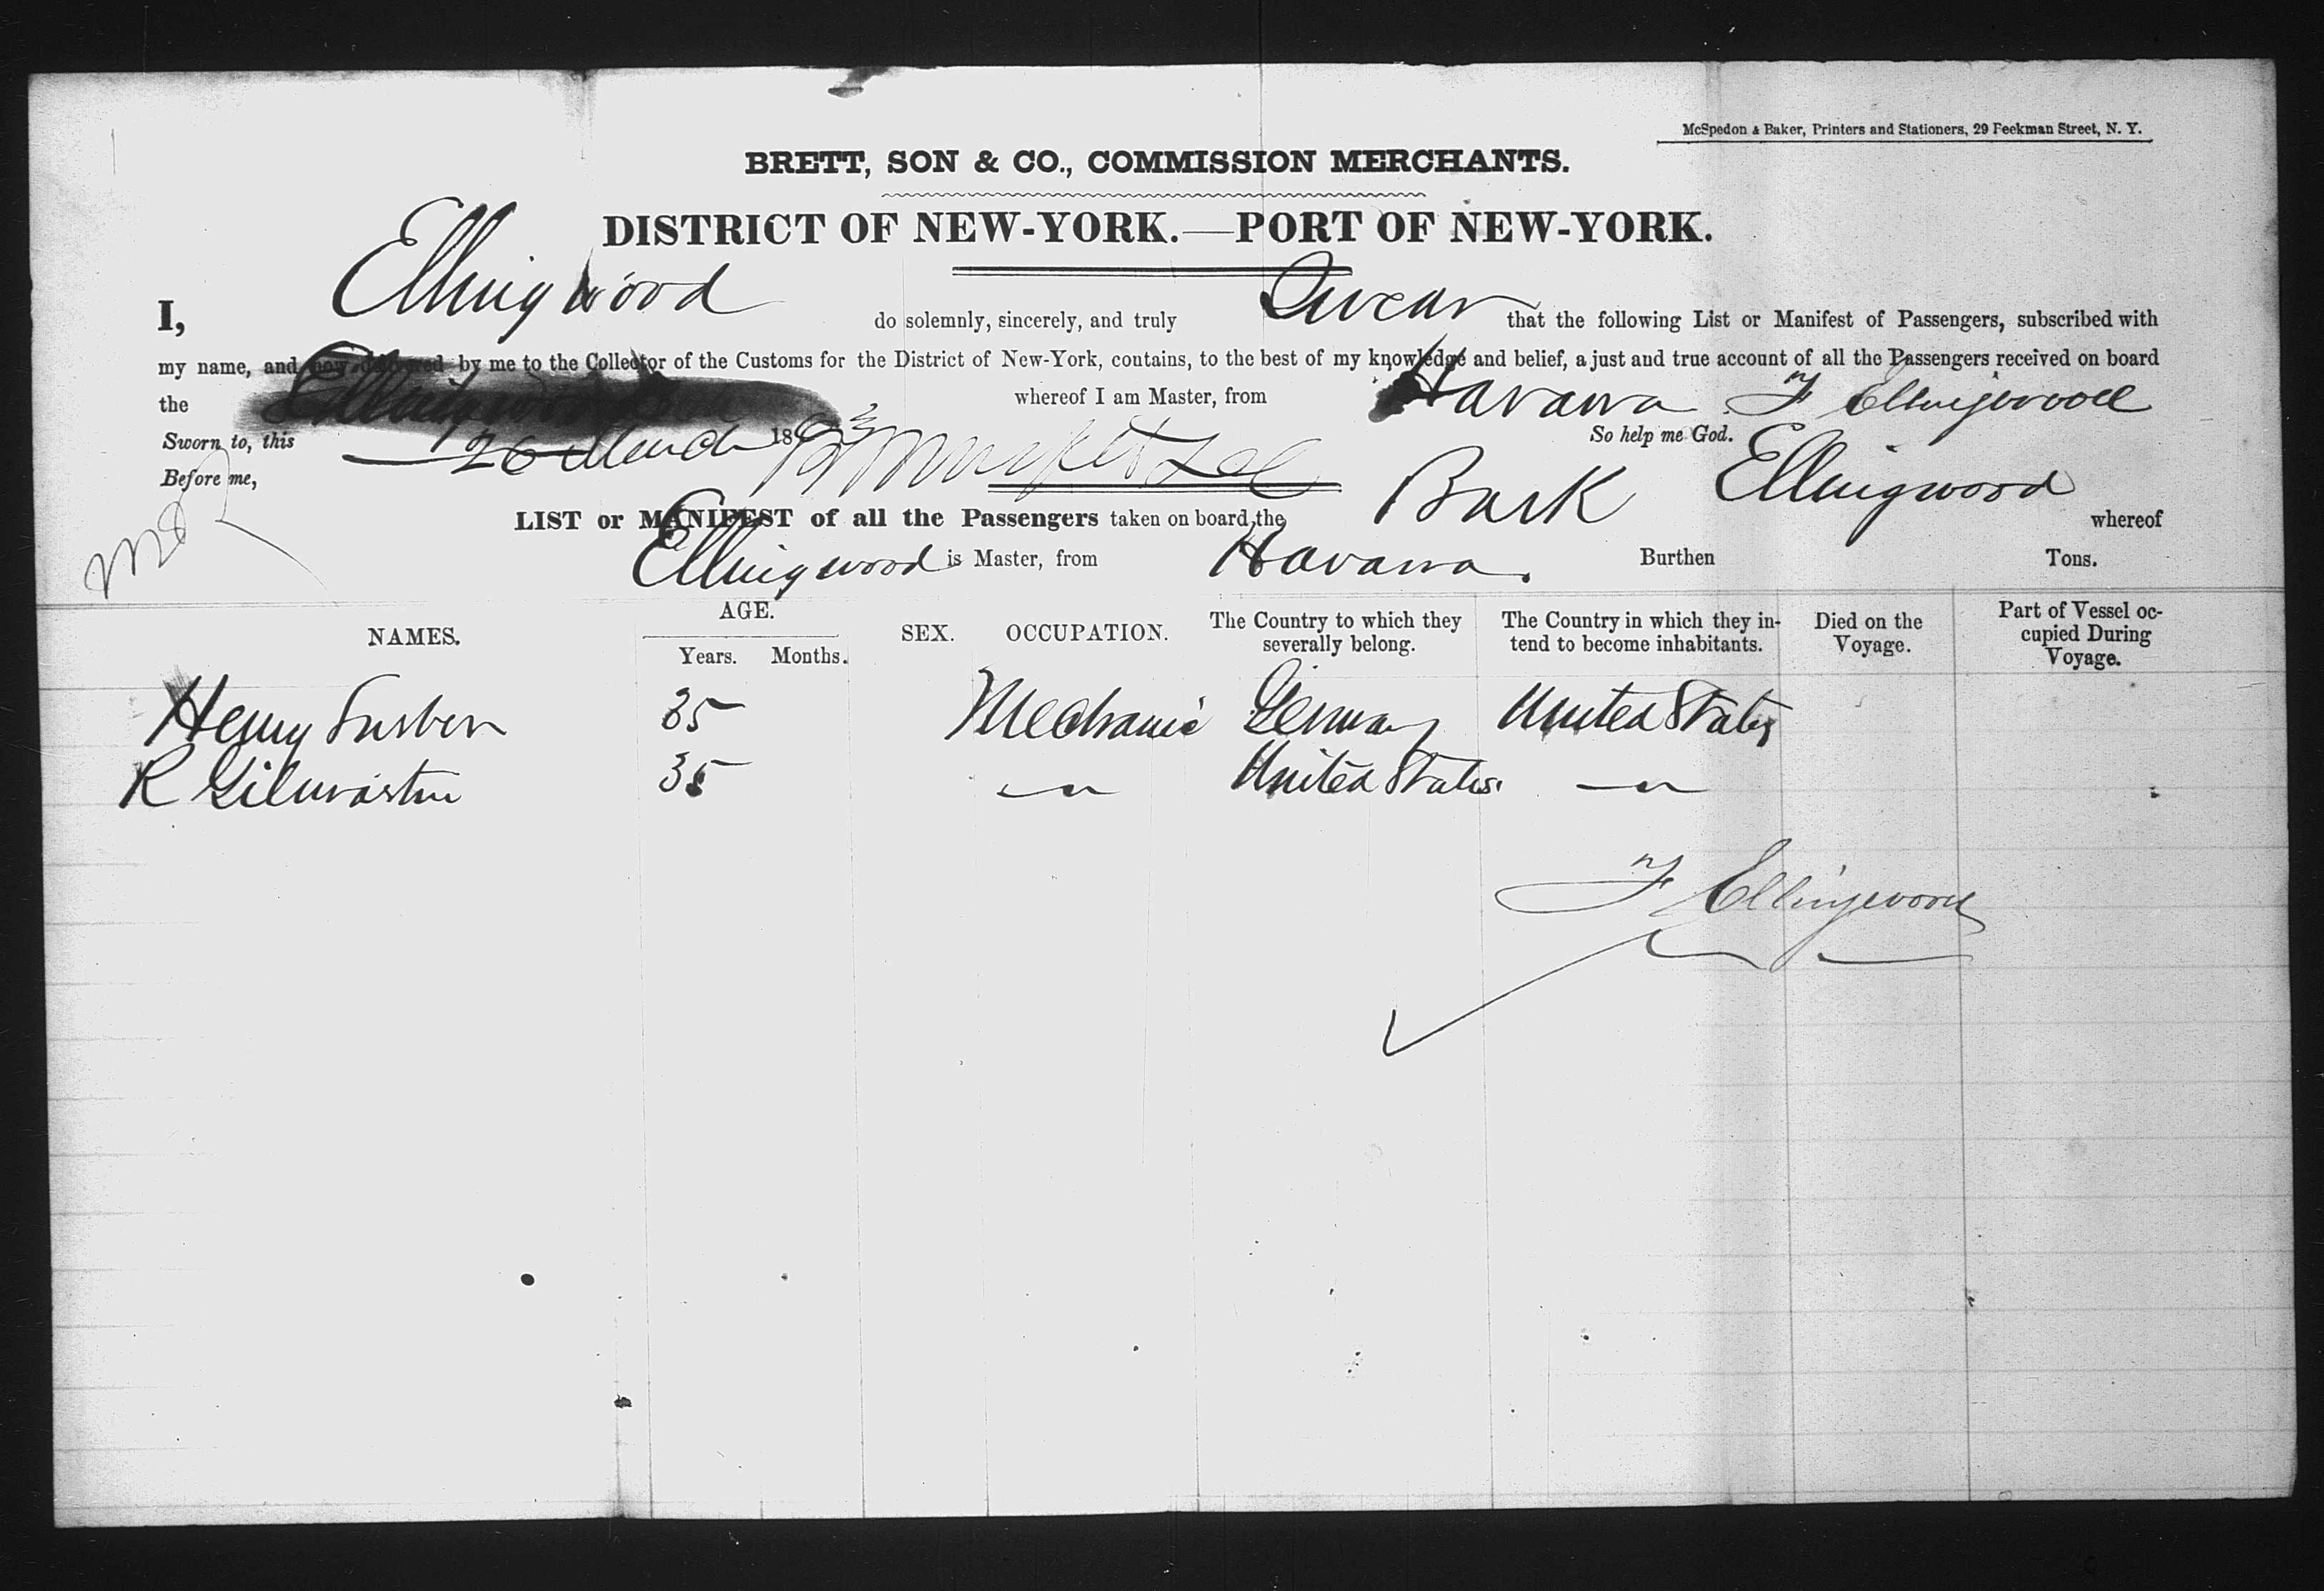 McSpedon & Baker, Printers and Stationers, 29 Feekman Street, N. Y.
BRETT, SON & CO., COMMISSION MERCHANTS.
DISTRICT OF NEW-YORK.—PORT OF NEW-YORK.
I, Ellingwood do solemnly, sincerely, and truly Swear that the following List or Manifest of Passengers, subscribed with
my name, and now delivered by me to the Collector of the Customs for the District of New-York, contains, to the best of my knowledge and belief, a just and true account of all the Passengers received on board
the Ellingwood whereof I am Master, from Havana F Ellingwood
Sworn to, this 26 March 18 So help me God.
Before me,
LIST or MANIFEST of all the Passengers taken on board the Bark Ellingwood whereof
Ellingwood is Master, from Havana. Burthen Tons.
NAMES. AGE. Years. Months. SEX. OCCUPATION. The Country to which they severally belong. The Country in which they intend to become inhabitants. Died on the Voyage. Part of Vessel occupied During Voyage.
Henry 35 Mechanic Germany United States
R 35 〃 United States. 〃
F Ellingwood